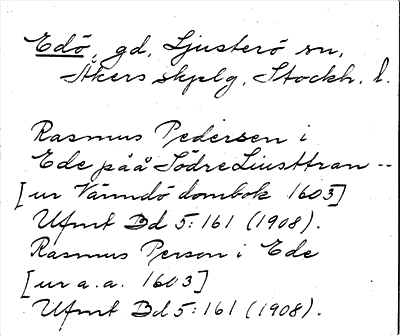 Edö, gd, Ljusterö sn,
Åkers skplg, Stockh. l.
Rasmus Pedersen i
Ede påå Södre Liusttran --
[ur Värmdö dombok 1603]
Ufmt Bd 5:161 (1908).
Rasmus Person i Ede
[ur a.a. 1603]
Ufmt Bd 5:161 (1908).